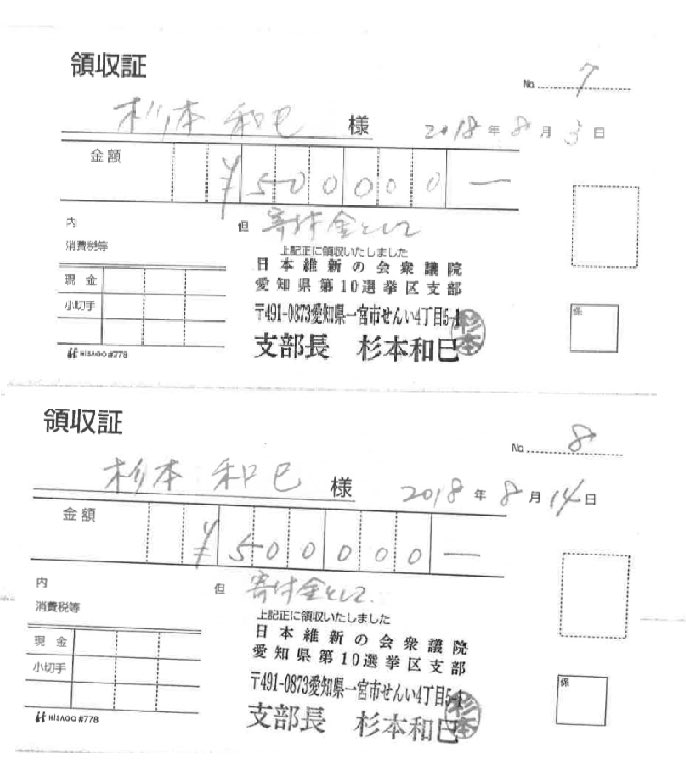 領収証
No. 7
杉本 和巳 様 2018年 8月 3日
金額 ¥500000—
内 但 寄付金として
消費税等 上記正に領収いたしました
日本維新の会衆議院
現金 愛知県第10選挙区支部
小切手 〒491-0873愛知県一宮市せんい4丁目5-1
支部長 杉本和巳 杉本
HISAGO #778
係
領収証
No. 8
杉本 和巳 様 2018年 8月 14日
金額 ¥500000—
内 但 寄付金として
消費税等 上記正に領収いたしました
日本維新の会衆議院
現金 愛知県第10選挙区支部
小切手 〒491-0873愛知県一宮市せんい4丁目5-1
支部長 杉本和巳 杉本
HISAGO #778
係